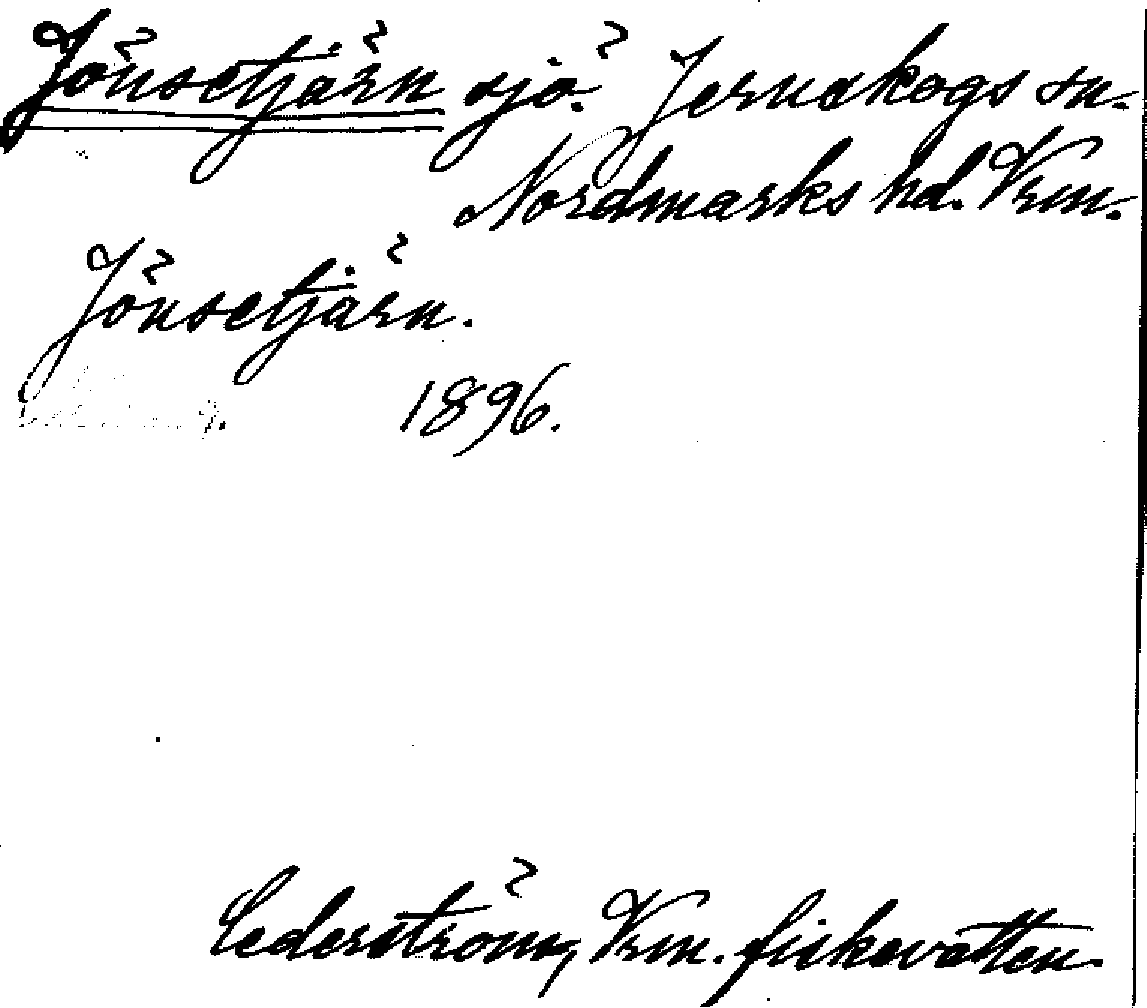 Jönsetjärn sjö. Jernskogs sn.
Nordmarks hd. Vrm.
Jönsetjärn.
1896.
Cederström, Vrm. fiskevatten.